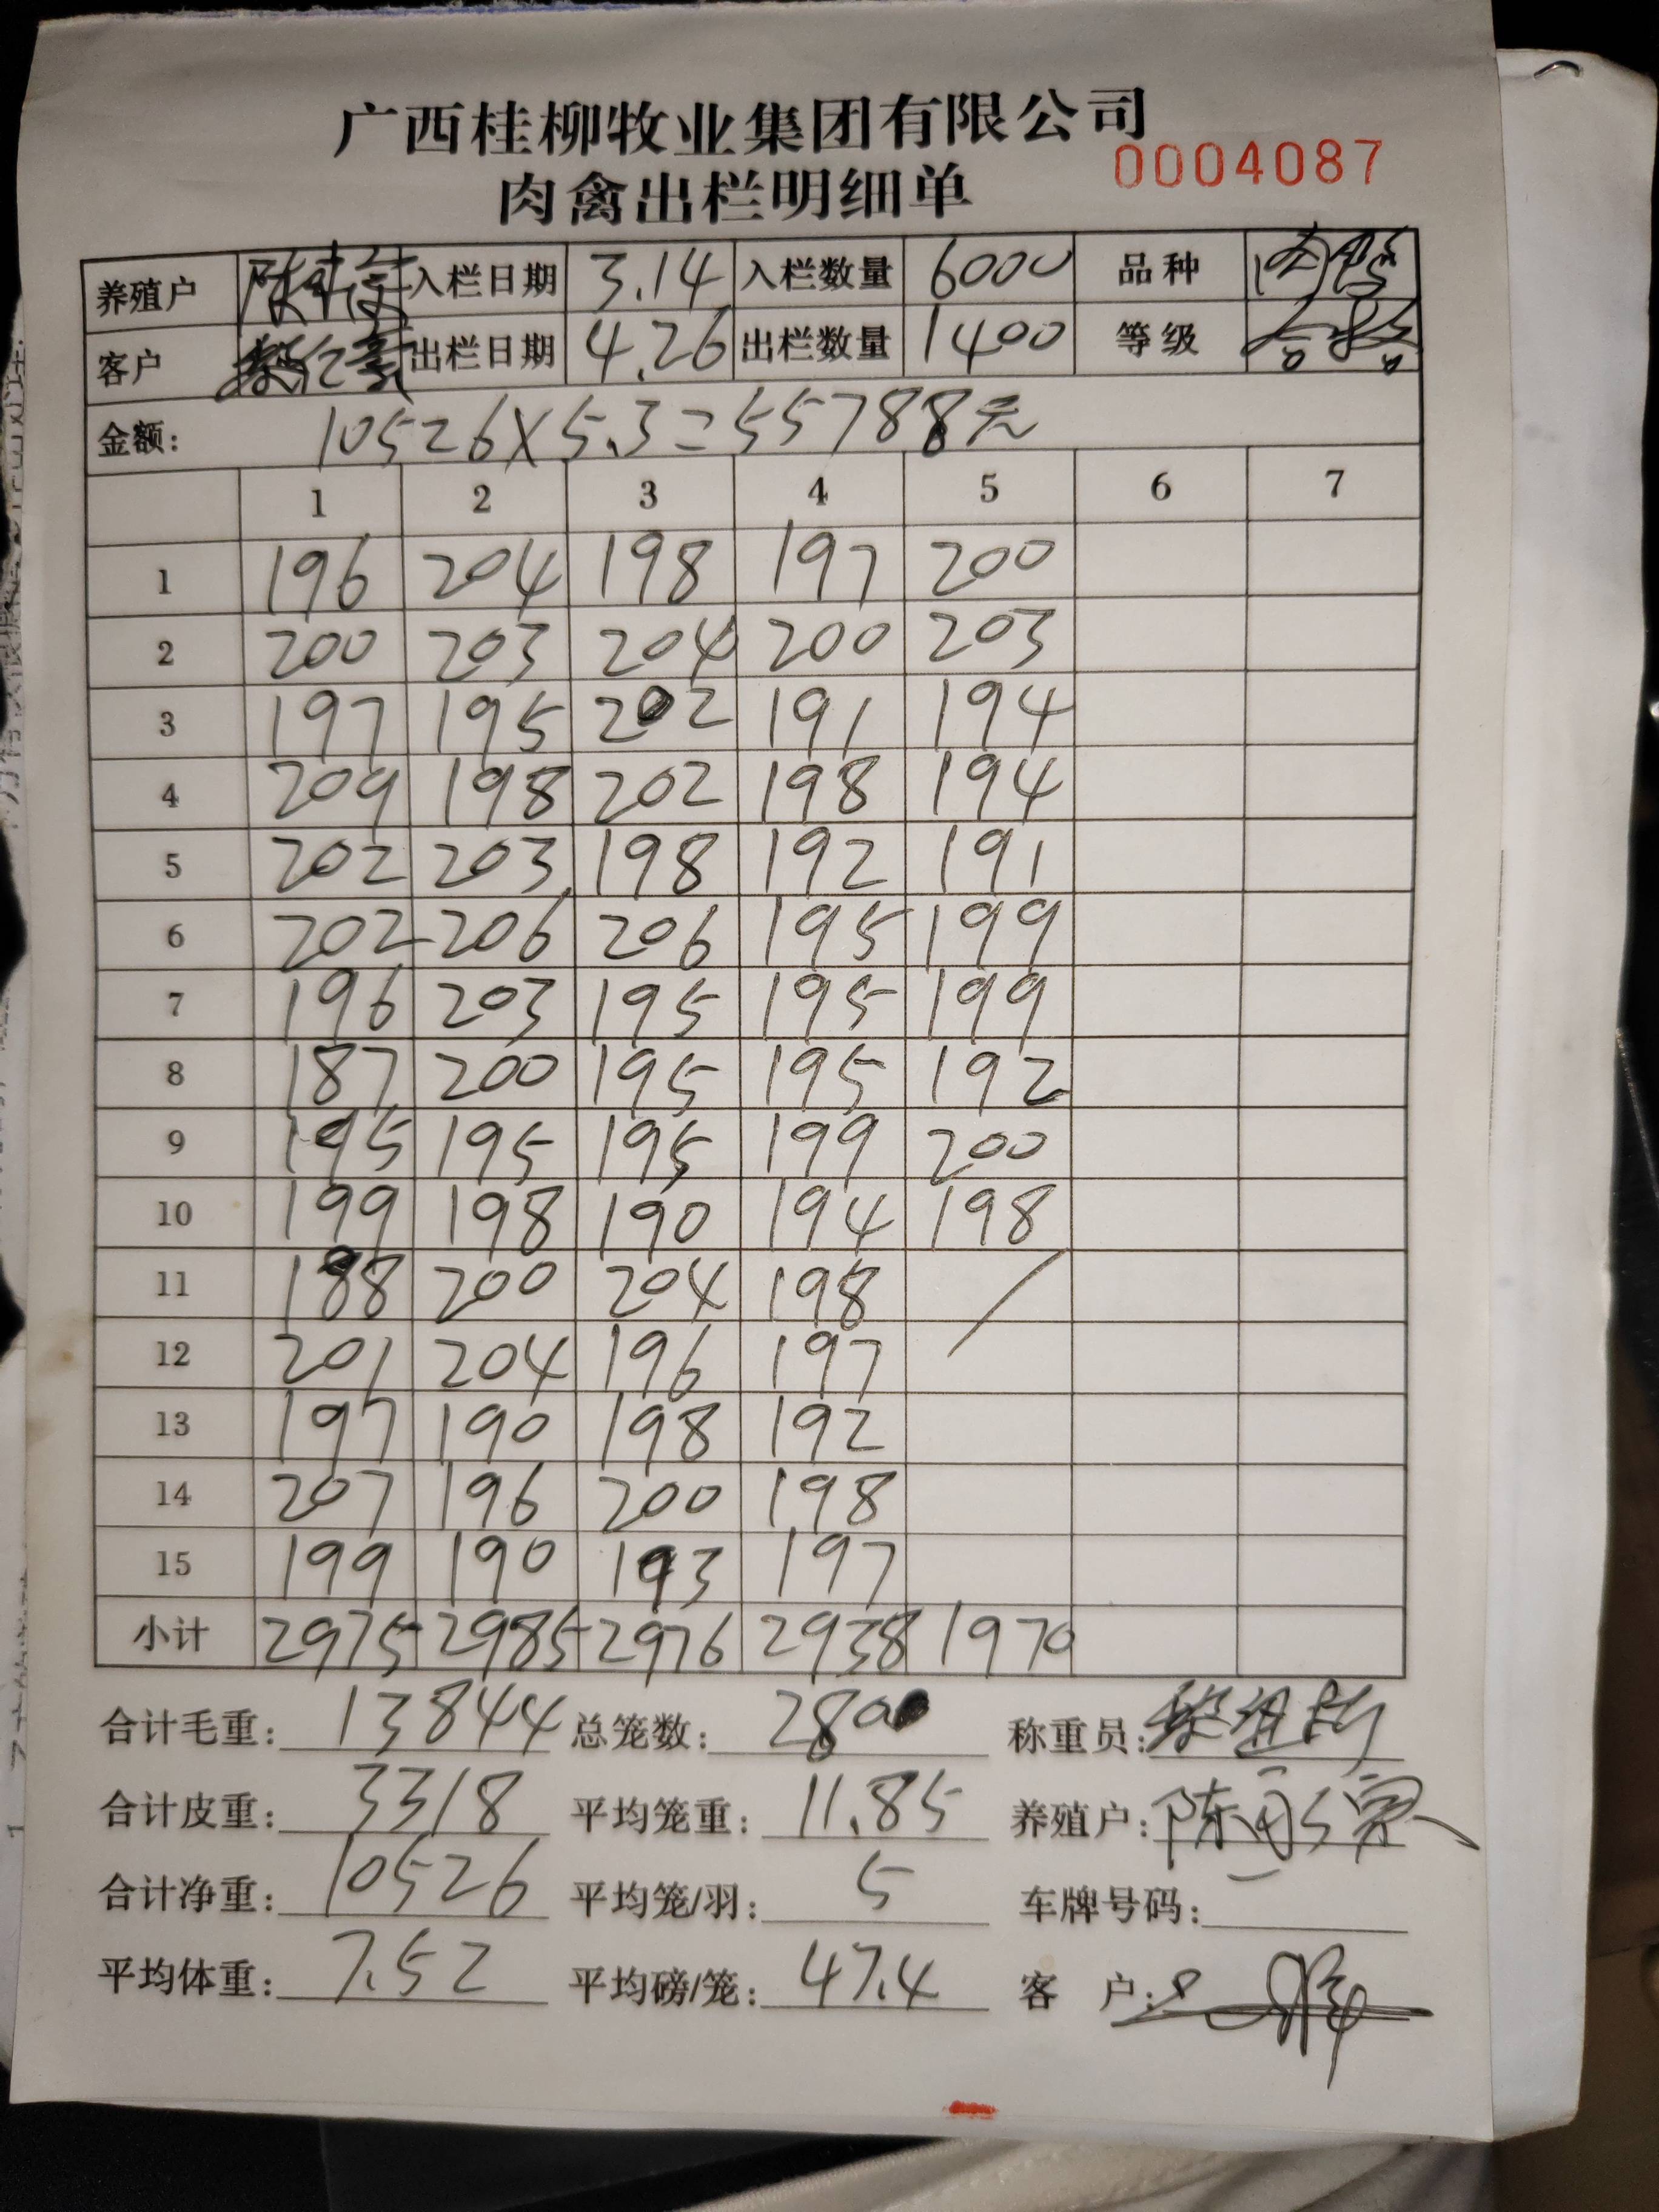 广西桂柳牧业集团有限公司
肉禽出栏明细单 0004087
养殖户 入栏日期 3.14 入栏数量 6000 品种 肉鸭
客户 出栏日期 4.26 出栏数量 1400 等级 合格
金额: 10526X5.3=55788元
1 2 3 4 5 6 7
1 196 204 198 197 200
2 200 203 204 200 203
3 197 195 202 191 194
4 209 198 202 198 194
5 202 203 198 192 191
6 202 206 206 195 199
7 196 203 195 195 199
8 187 200 195 195 192
9 195 195 195 199 200
10 199 198 190 194 198
11 188 200 204 198 /
12 201 204 196 197
13 197 190 198 192
14 207 196 200 198
15 199 190 193 197
小计 2975 2985 2976 2938 1970
合计毛重: 13844 总笼数: 280 称重员:
合计皮重: 3318 平均笼重: 11.85 养殖户: 陈
合计净重: 10526 平均笼/羽: 5 车牌号码:
平均体重: 7.52 平均磅/笼: 47.4 客 户: